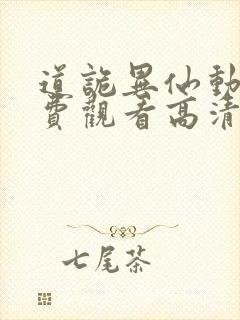 道詭異仙動
費觀看高清
七尾茶